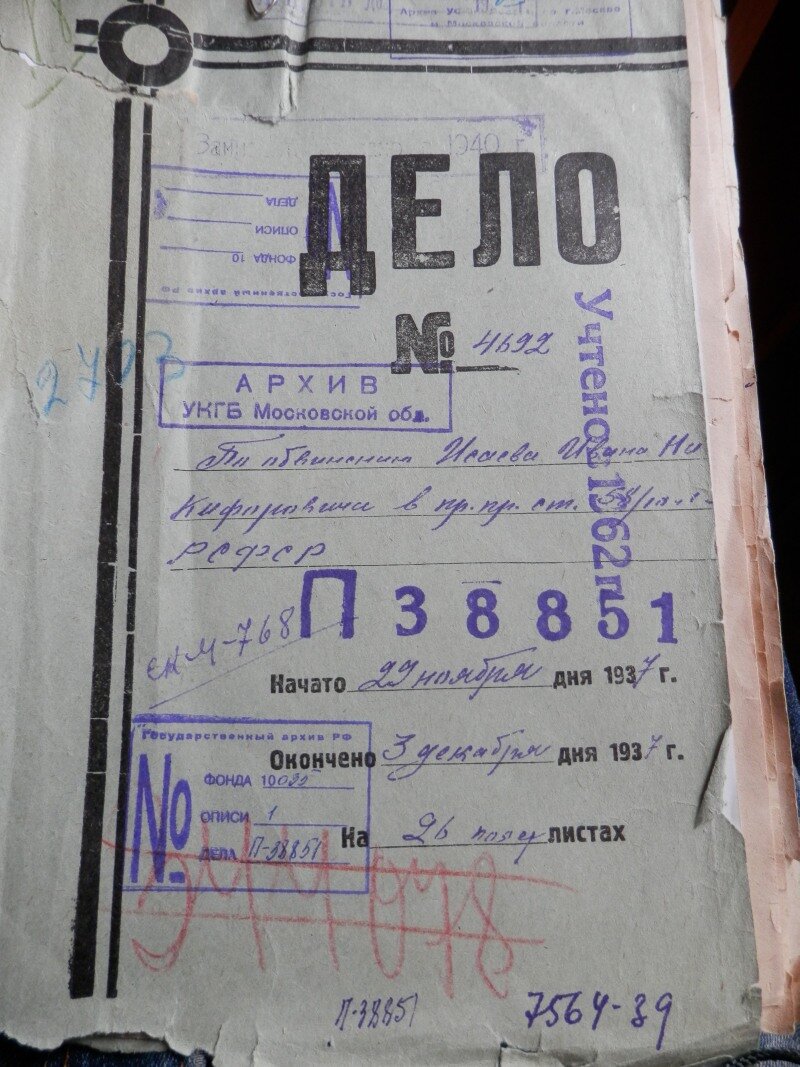 г.Москве
и Московской области
1940 г.
ДЕЛО
ДЕЛА
ОПИСИ
ФОНДА 10
Государственный архив РФ
№ 4692
Учтено 1962 г.
2703
АРХИВ
УКГБ Московской обл.
По обвинению Исаева Ивана Ни
кифоровича в пр.пр. ст. 58/10
РСФСР
П 38851
-768
Начато 29 ноября дня 1937 г.
Окончено 3 декабря дня 1937 г.
Государственный архив РФ
№ ФОНДА 10035
ОПИСИ 1
ДЕЛА П-38851
На 26 листах
П-38851
7564-39